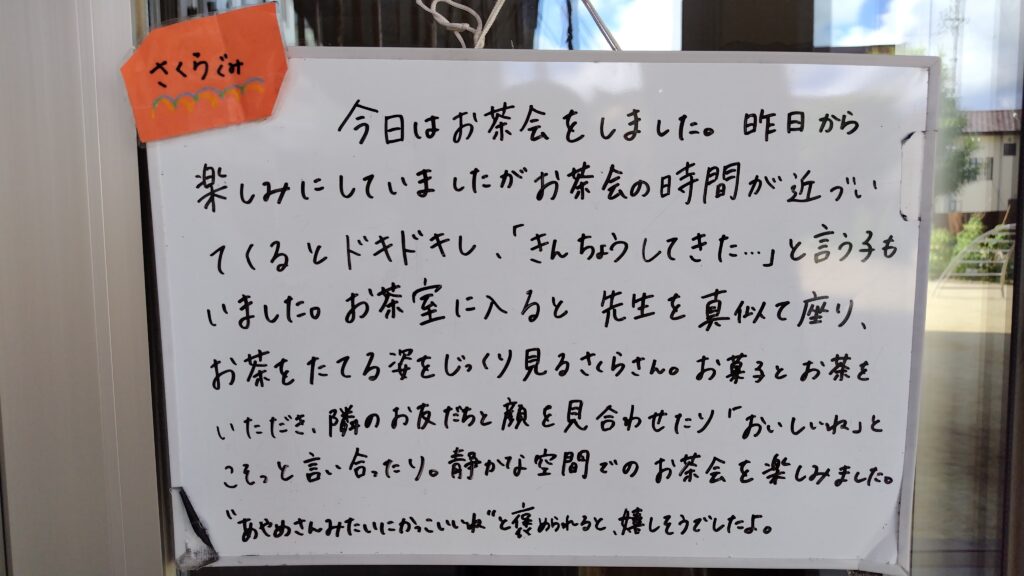 さくらぐみ
今日はお茶会をしました。昨日から
楽しみにしていましたがお茶会の時間が近づい
てくるとドキドキし、「きんちょうしてきた…」と言う子も
いました。お茶室に入ると 先生を真似て座り、
お茶をたてる姿をじっくり見るさくらさん。お菓子とお茶を
いただき、隣のお友だちと顔を見合わせたり「おいしいね」と
こそっと言い合ったり。静かな空間でのお茶会を楽しみました。
"あやめさんみたいにかっこいいね"と褒められると、嬉しそうでしたよ。